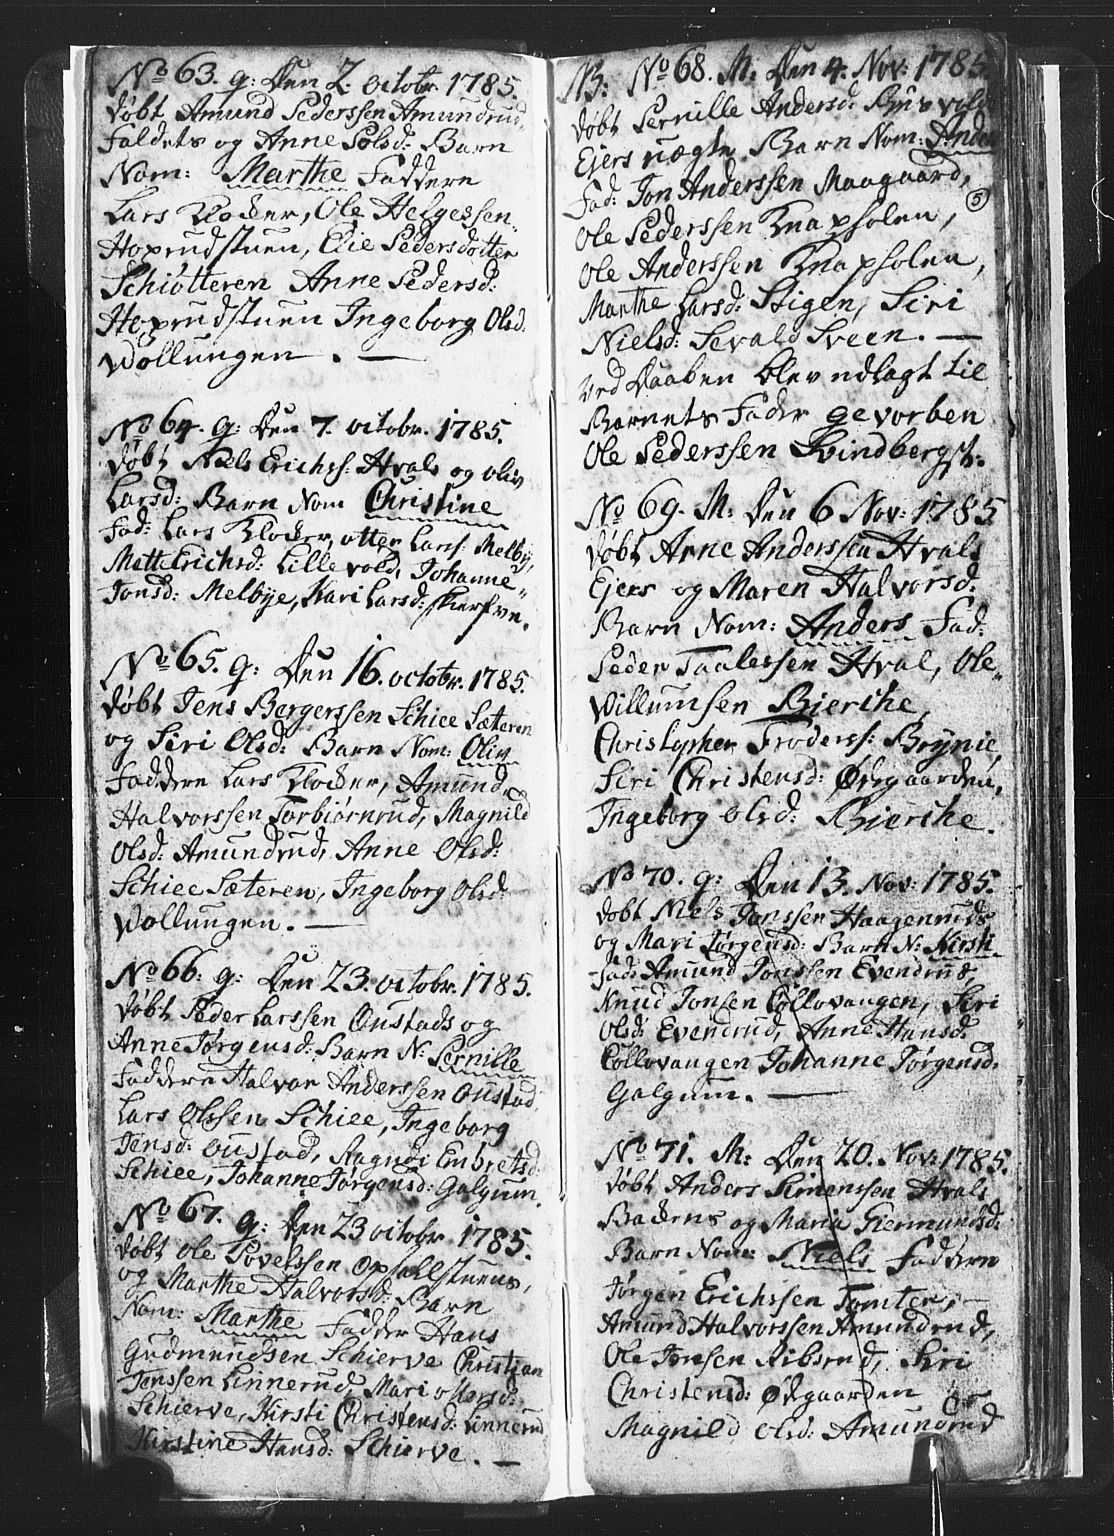 No 63. q: Den 2 octobr. 1785.
døbt Amund Pederssen Amundrud
Faldets og Anne Polsd: Barn
Nom: Marthe Faddere
Lars Klocker, Ole Helgessen
Hoprudstuen, Elie Pedersdotter
Schiøtteren Anne Pedersd:
Hoprudstuen Ingeborg Olsd.
Wollungen. —
No 64. q: Den 7. octobr. 1785.
døbt Niels Erichss: Hvals og Oliv
Larsd: Barn Nom Christine
Fad: Lars Klocker, otter Larss: Melbÿ,
Mette Erichsd: Lillevold, Johanne
Jonsd: Melbÿe, Kari Larsd: skierfve.
No 65. q: Den 16. octobr. 1785.
døbt Jens Bergerssen Schiee Sæteren
og Siri Olsd: Barn Nom: Oliv
Faddere Lars Klocker, Amund
Halvorssen Torbiørnrud, Magnild
Olsd: Amundrud, Anne Olsd:
Schiee Sæteren, Ingeborg Olsd:
Wollungen. —
No 66: q: Den 23. octobr. 1785.
døbt Peder Larssen Oustads og
Anne Jørgensd: Barn N: Pernille
Faddere Halvor Anderssen Oustad,
Lars Olssen Schiee, Ingeborg
Jensd: Oustad, Ragndi Embretsd:
Schiee, Johanne Jørgensd: Galgum.
No 67. q: Den 23 octobr 1785.
døbt Ole Povelssen Opsallstuens,
og Marthe Halvorsd: Barn
Nom: Marthe Fadder Hans
Gudmundsen Schierve Christian
Jenssen Linnerud, Mari ottersd:
Schierve, Kirsti Christensd: Linnerud
Kirstine Hansd: Schierve. —
NB: No 68. M: Den 4. Nov: 1785.
døbt Pernille Andersd:
Ejers uægte Barn Nom: Anders
Fad: Jon Anderssen Maagaard,
5
Ole Pederssen Knapholen,
Ole Anderssen Knapholen,
Marthe Larsd: Stigen, Siri
Nielsd: Sevald Sveen. —
ved Daaben blev udlagt til
Barnets Fader gevorben
Ole Pederssen Svindbergst:
No 69. M: Den 6 Nov: 1785
døbt Arne Anderssen Hvals
Ejers og Maren Halvorsd:
Barn Nom: Anders Fad:
Peder Taalessen Hval, Ole
Willumsen Bierche,
Christopher Froderss: Brÿnie,
Siri Christensd: Ødegaarden,
Ingeborg Olsd: Bierche.
No 70. q: Den 13. Nov: 1785.
døbt Niels Jonssen Haagenruds
og Mari Jørgensd: Barn N: Kirsti
Fad: Amund Jonssen Evendrud,
Knud Jonsen Collovangen, Siri
Olsd: Evendrud, Anne Hansd:
Collovangen Johanne Jørgensd.
Galgum. —
No 71. M: Den 20. Nov: 1785.
døbt Anders Simenssen Hvals
Backens og Maria Giermundsd:
Barn Nom: Niels Faddere
Jørgen Erichssen Tomter, —
Amund Halvorssen Amundrud,
Ole Jonsen Ribsrud, Siri
Christensd: Ødgaarden og
Magnild Olsd: Amundrud